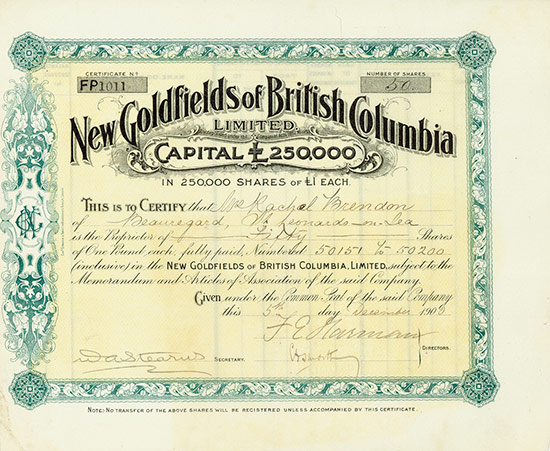 CERTIFICATE No
NUMBER OF SHARES
FP1011
50
New Goldfields of British Columbia
LIMITED.
CAPITAL £250,000
IN 250,000 SHARES OF £1 EACH.
THIS IS TO CERTIFY that Mrs Rachel Brendon
of Beauregard, St Leonards-on-Sea
is the Proprietor of Fifty Shares
of One Pound each, fully paid, Numbered 50151 to 50200
(inclusive) in the NEW GOLDFIELDS OF BRITISH COLUMBIA, LIMITED, subject to the
Memorandum and Articles of Association of the said Company.
Given under the Common Seal of the said Company
this 5th day December 1903
DIRECTORS.
SECRETARY.
NOTE: NO TRANSFER OF THE ABOVE SHARES WILL BE REGISTERED UNLESS ACCOMPANIED BY THIS CERTIFICATE.